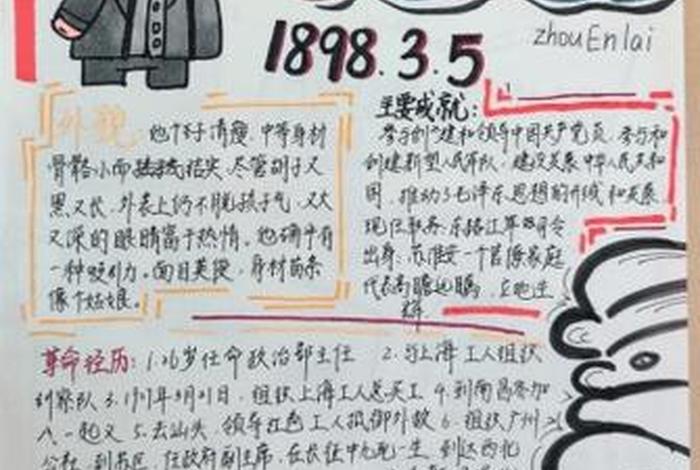 1898.3.5
zhouEnlai
外貌: 他个子清瘦.中等身材
骨骼小而 结实.尽管胡子又
黑又长.外表上仍不脱孩子气.又大
又深的眼睛富于热情.他确乎有
一种吸引力。面目英俊,身材苗条
像个姑娘。
主要成就:
参与创建和领导中国共产党员.参与和
创建新型人民军队.建设发展中华人民共和
国.推动了毛泽东思想的形成和发展
现任职务:东 江 军 司令
出身:苏淮安一个官僚家庭
代表高瞻远瞩,
辉
革命经历:1.26岁任命政治部主任 2.与上海工人组织
纠察队 3. 年3月21日.组织上海工人总 工 4.到南昌参加
八.一起义 5.去汕头.领导红色工人抵御外敌 6.组织广州
公社.到苏区.任政府副主席.在长征中九死一生.到达西北